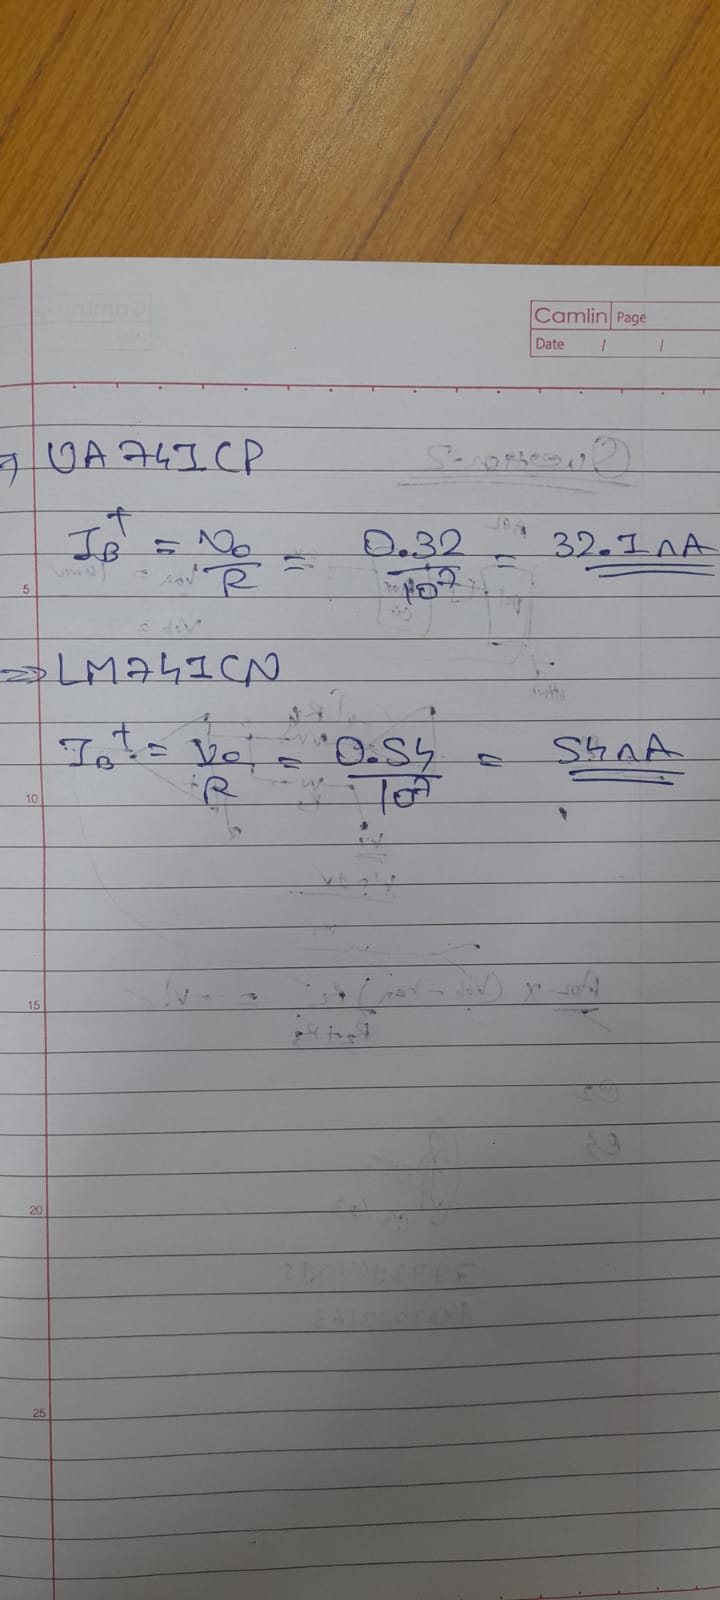 Camlin Page
Date / /
→ UA741CP
I_B^+ = V_0/R = 0.32/10^7 = 32.1nA
5
⇒ LM741CN
I_B^+ = V_0/R = 0.54/10^7 = 54nA
10
15
20
25